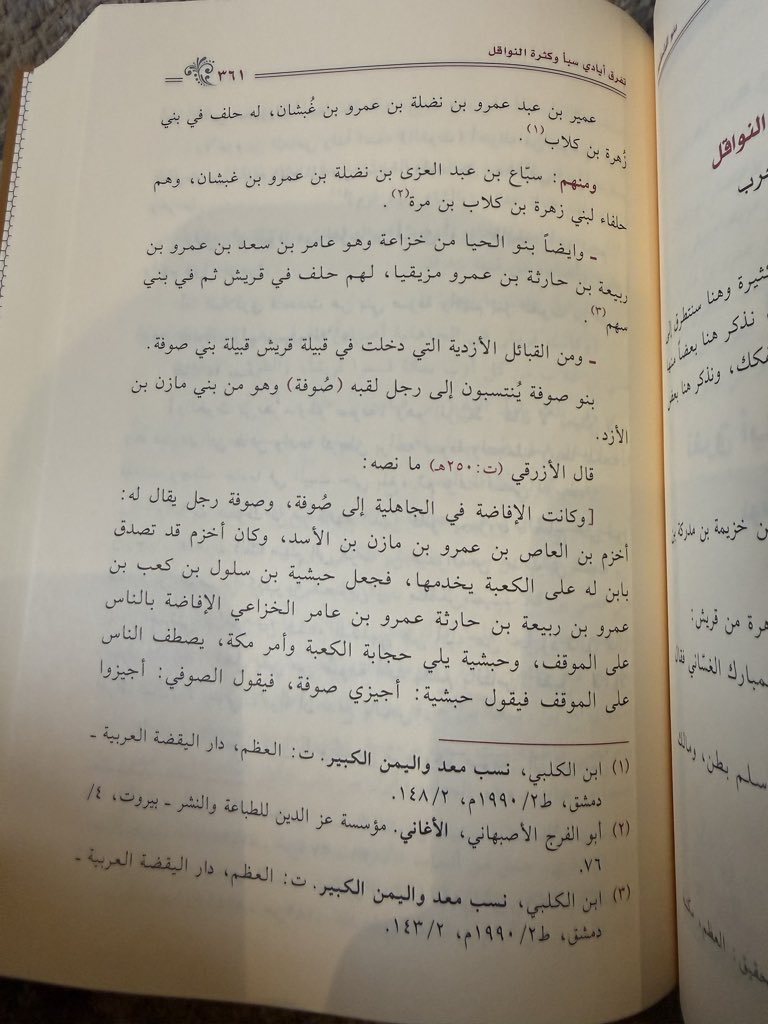 تفرق أيادي سبأ وكثرة النواقل
٣٦١
عمير بن عبد عمرو بن نضلة بن عمرو بن غُبشان، له حلف في بني
زُهرة بن كلاب(١).
ومنهم: سبّاع بن عبد العزى بن نضلة بن عمرو بن غبشان، وهم
حلفاء لبني زهرة بن كلاب بن مرة(٢).
ـ وايضاً بنو الحيا من خزاعة وهو عامر بن سعد بن عمرو بن
ربيعة بن حارثة بن عمرو مزيقيا، لهم حلف في قريش ثم في بني
سهم(٣).
ـ ومن القبائل الأزدية التي دخلت في قبيلة قريش قبيلة بني صوفة.
بنو صوفة يُنتسبون إلى رجل لقبه (صُوفة) وهو من بني مازن بن
الأزد.
قال الأزرقي (ت: ٢٥٠هـ) ما نصه:
[وكانت الإفاضة في الجاهلية إلى صُوفة، وصوفة رجل يقال له:
أخزم بن العاص بن عمرو بن مازن بن الأسد، وكان أخزم قد تصدق
بابن له على الكعبة يخدمها، فجعل حبشية بن سلول بن كعب بن
عمرو بن ربيعة بن حارثة عمرو بن عامر الخزاعي الإفاضة بالناس
على الموقف، وحبشية يلي حجابة الكعبة وأمر مكة، يصطف الناس
على الموقف فيقول حبشية: أجيزي صوفة، فيقول الصوفي: أجيزوا
(١) ابن الكلبي، نسب معد واليمن الكبير. ت: العظم، دار اليقضة العربية ـ
دمشق، ط٢/ ١٩٩٠م، ٢/ ١٤٨.
(٢) أبو الفرج الأصبهاني، الأغاني. مؤسسة عز الدين للطباعة والنشر ـ بيروت، ٤/
٧٦.
(٣) ابن الكلبي، نسب معد واليمن الكبير. ت: العظم، دار اليقضة العربية ـ
دمشق، ط٢/ ١٩٩٠م، ٢/ ١٤٣.
النواقل
كثيرة وهنا سنتطرق إلى
نذكر هنا بعضاً منها
ونذكر هنا بعض
بن خزيمة بن مدركة بن
من قريش:
لمبارك الغسّاني فقال
سلم بطن، ومالك
العظم،